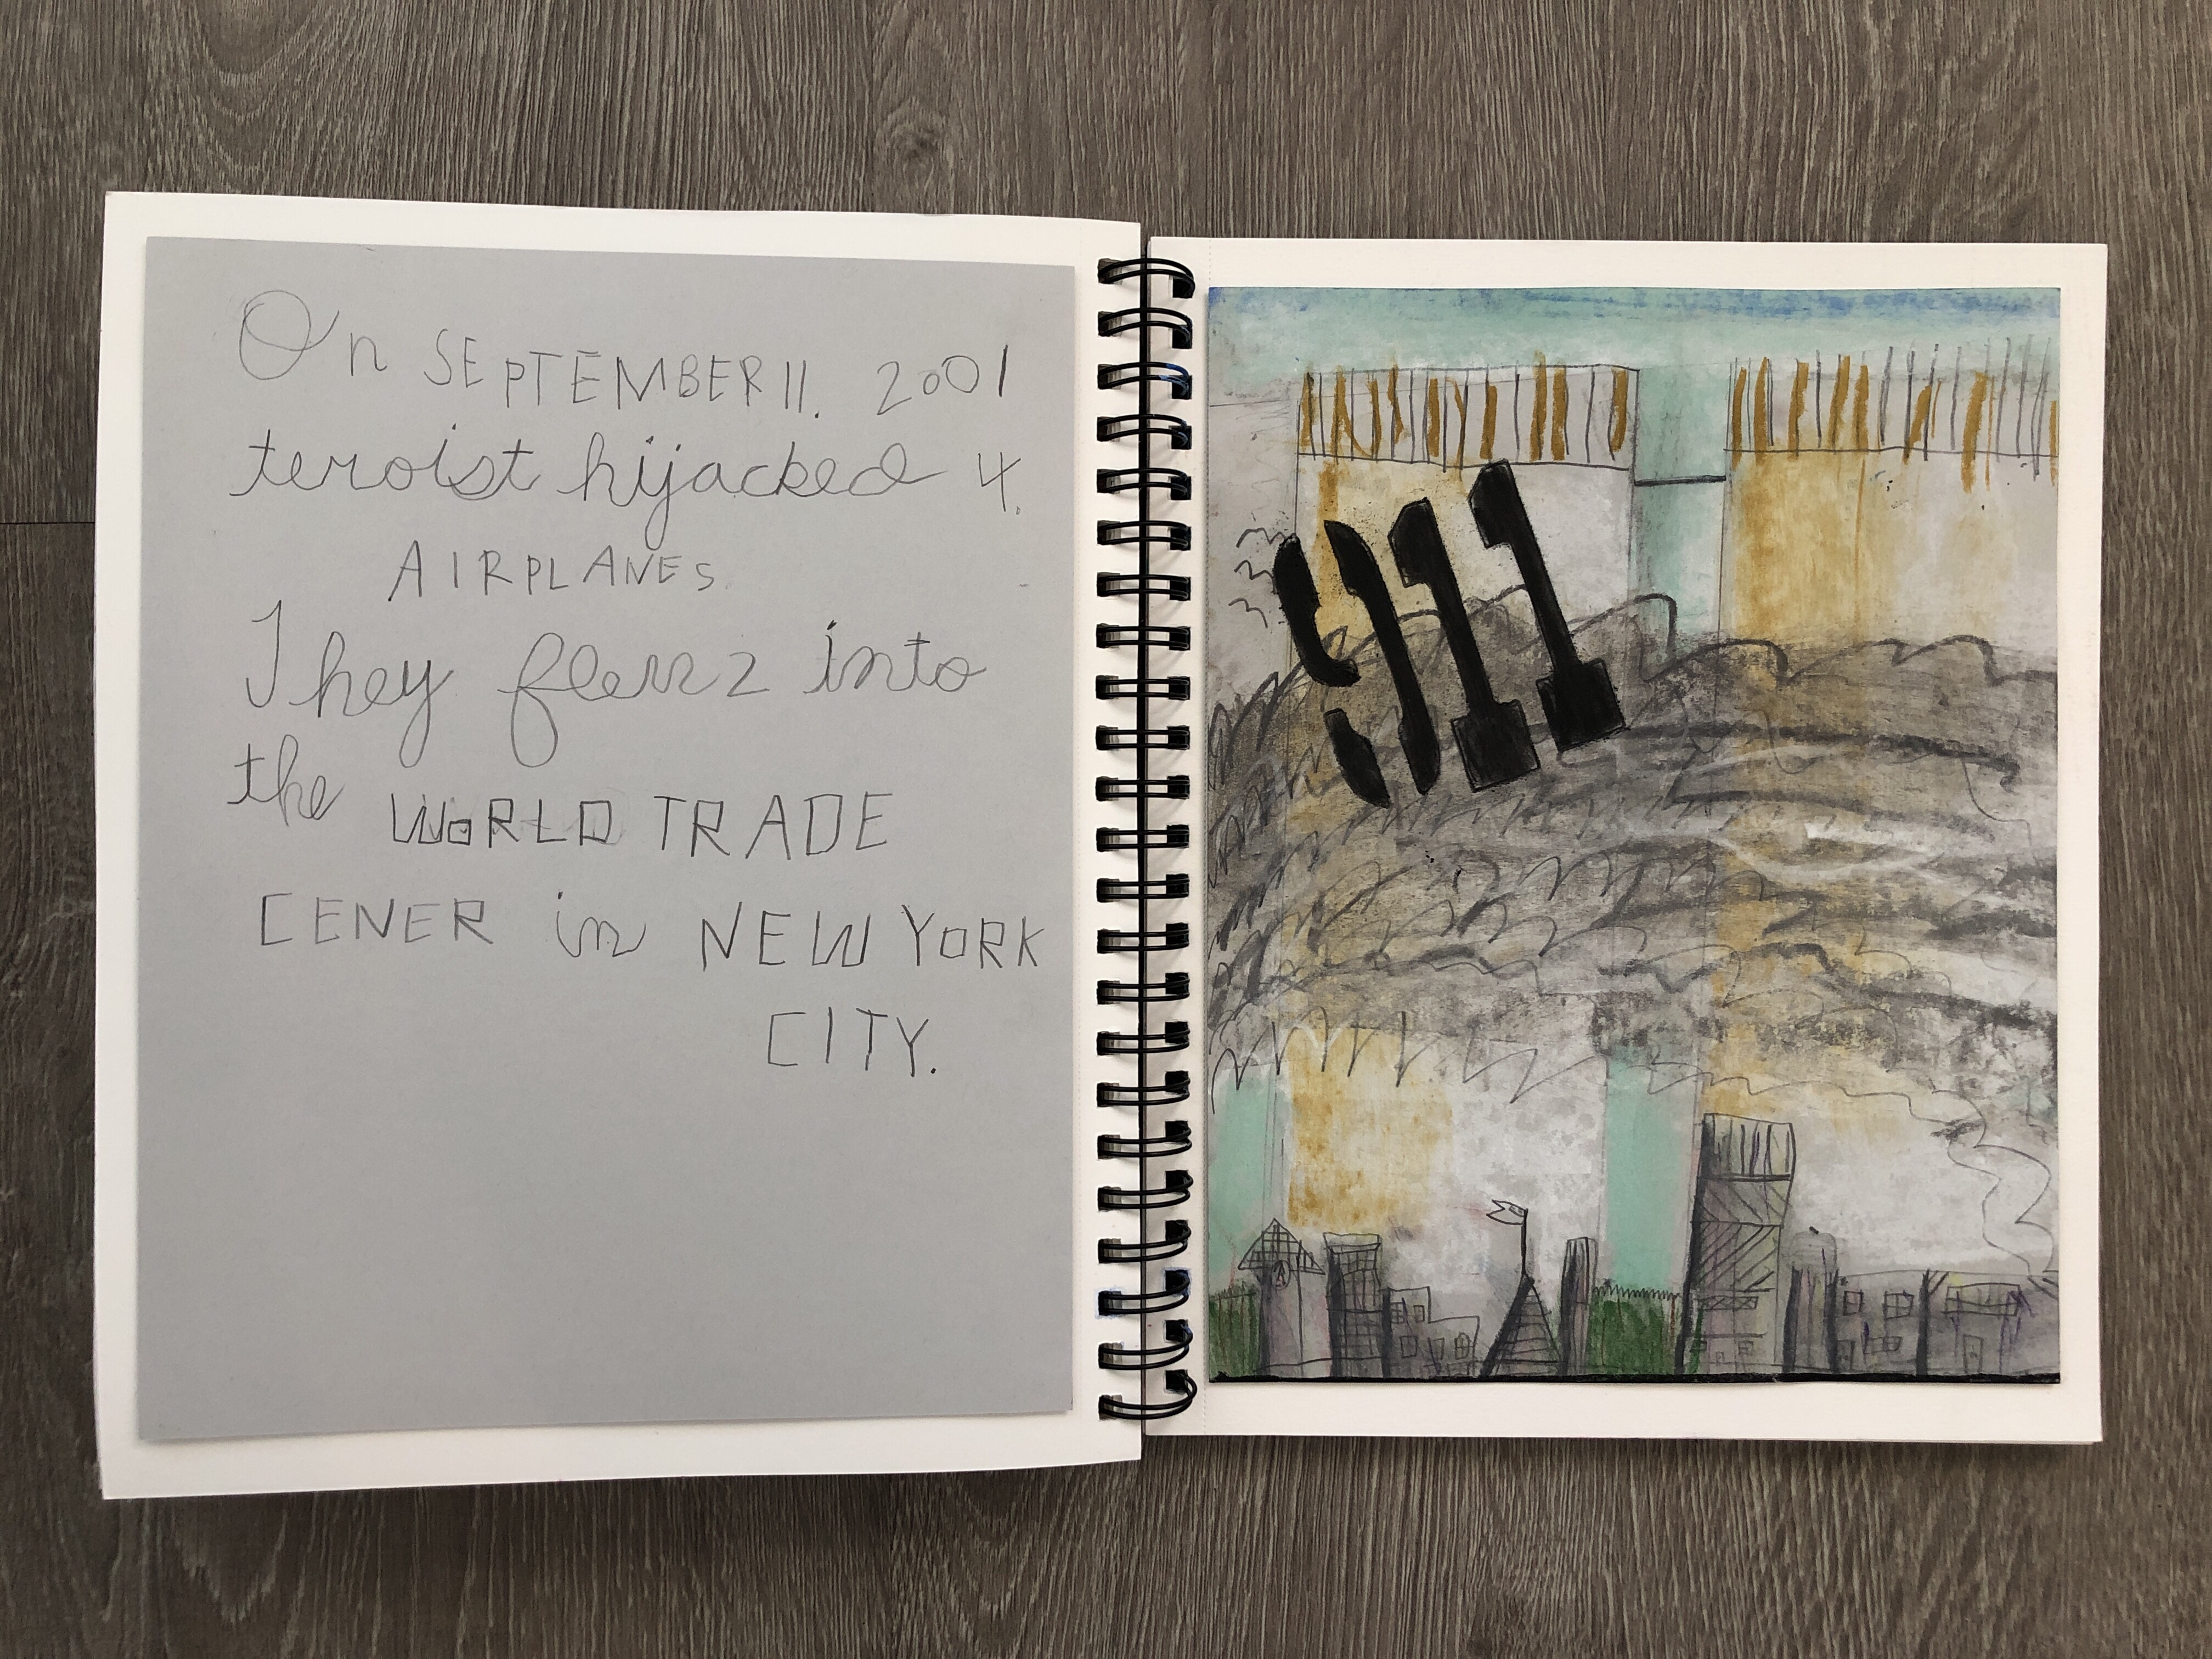 On SEPTEMBER 11. 2001
teroist hijacked 4.
AIRPLANES
They flew 2 into
the WORLD TRADE
CENER in NEW YORK
CITY.
911